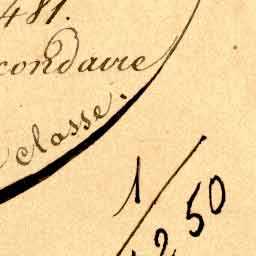 481.
condaire
classe.
1/
1250